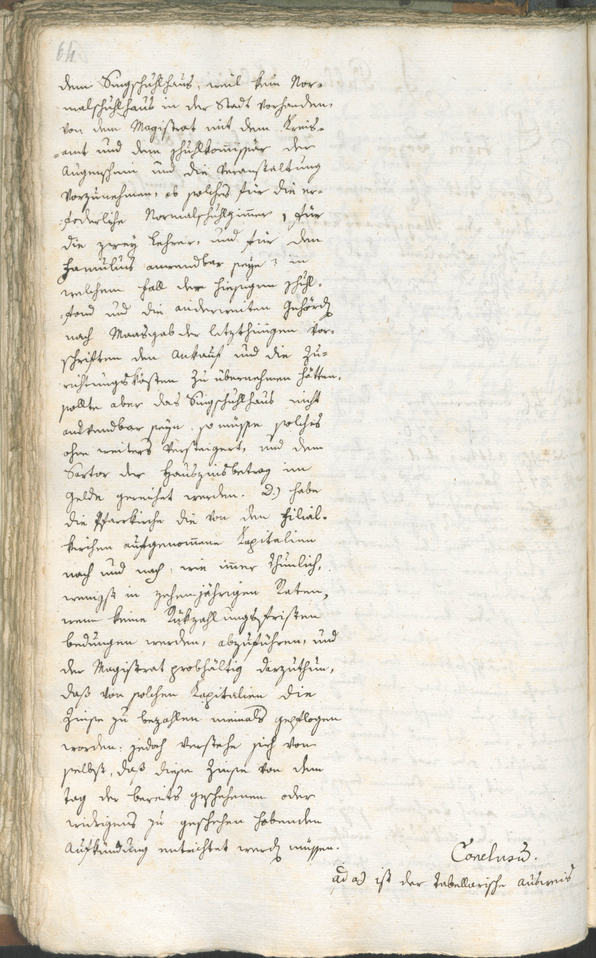 64
dem Singschuhlhaus, weil kein Nor¬
malschuhlhaus in der Stadt vorhanden,
von dem Magistrat mit dem Kreis¬
amt und dem Schuhlkommissär der
Augenschein und die Veranstaltung
vorzunehmen, ob solches für die er¬
foderliche Normalschuhlzimmer, für
die zwey Lehrer, und für den
Famulus anwendbar seye? in
welchem Fall der hiesigen Schuhl¬
fond und die anderweiten Gehörd
nach Maasgab der letzthinigen Vor¬
schriften den Ankauf und die Zu¬
richtungskösten zu übernehmen hätten.
sollte aber das Singschuhlhaus nicht
anwendbar seyn, so müsse solches
ohne weiters versteigert, und dem
der Hauszinsbetrag im
Gelde gereichet werden. 2.) habe
die Pfarrkirche die von den Filial¬
kirchen aufgenommene Kapitalien
nach und nach, wie immer thunlich,
wenigst in zehenjährigen Raten,
wenn keine Rükzahlungsfristen
bedungen werden, abzuführen, und
der Magistrat probhältig darzuthun,
daß von solchen Kapitalien die
Zinse zu bezahlen niemals gepflogen
worden: jedoch verstehe sich von
selbst, daß diese Zinse von dem
Tag der bereits geschehenen oder
widrigens zu geschehen habenden
Aufkündung entrichtet werden müssen.
Conclusum.
ad a) ist der tabellarische Ausweis